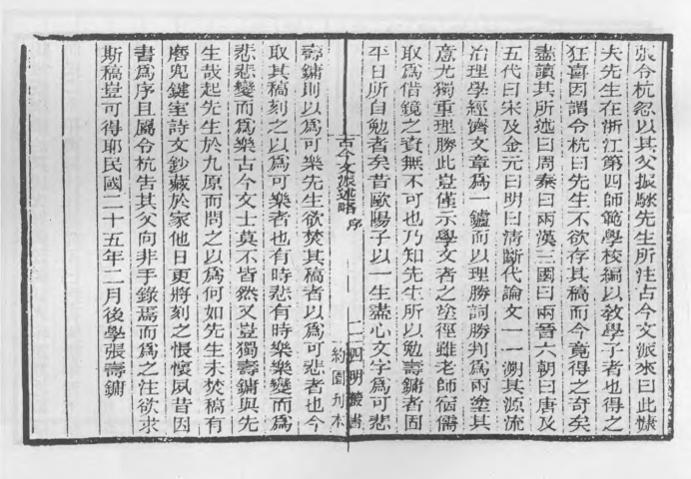 張令杭忽以其父振騄先生所注古今文派來曰此慷
夫先生在浙江第四師範學校編以教學子者也得之
狂喜因謂令杭曰先生不欲存其稿而今竟得之奇矣
盡讀其所述曰周秦曰兩漢三國曰兩晉六朝曰唐及
五代曰宋及金元曰明曰清斷代論文一一溯其源流
冶理學經濟文章為一鑪而以理勝詞勝判為兩塗其
意尤獨重理勝此豈僅示學文者之塗徑雖老師宿儒
取為借鏡之資無不可也乃知先生所以勉壽鏞者固
平日所自勉者矣昔歐陽子以一生盡心文字為可悲
古今文派述略 序
二 四明叢書
約園刊本
壽鏞則以為可樂先生欲焚其稿者以為可悲者也今
取其稿刻之以為可樂者也有時悲有時樂樂變而為
悲悲變而為樂古今文士莫不皆然又豈獨壽鏞與先
生哉起先生於九原而問之以為何如先生未焚稿有
磨兜鍵室詩文鈔藏於家他日更將刻之悵懷夙昔因
書為序且屬令杭告其父向非手錄焉而為之注欲求
斯稿豈可得耶民國二十五年二月後學張壽鏞